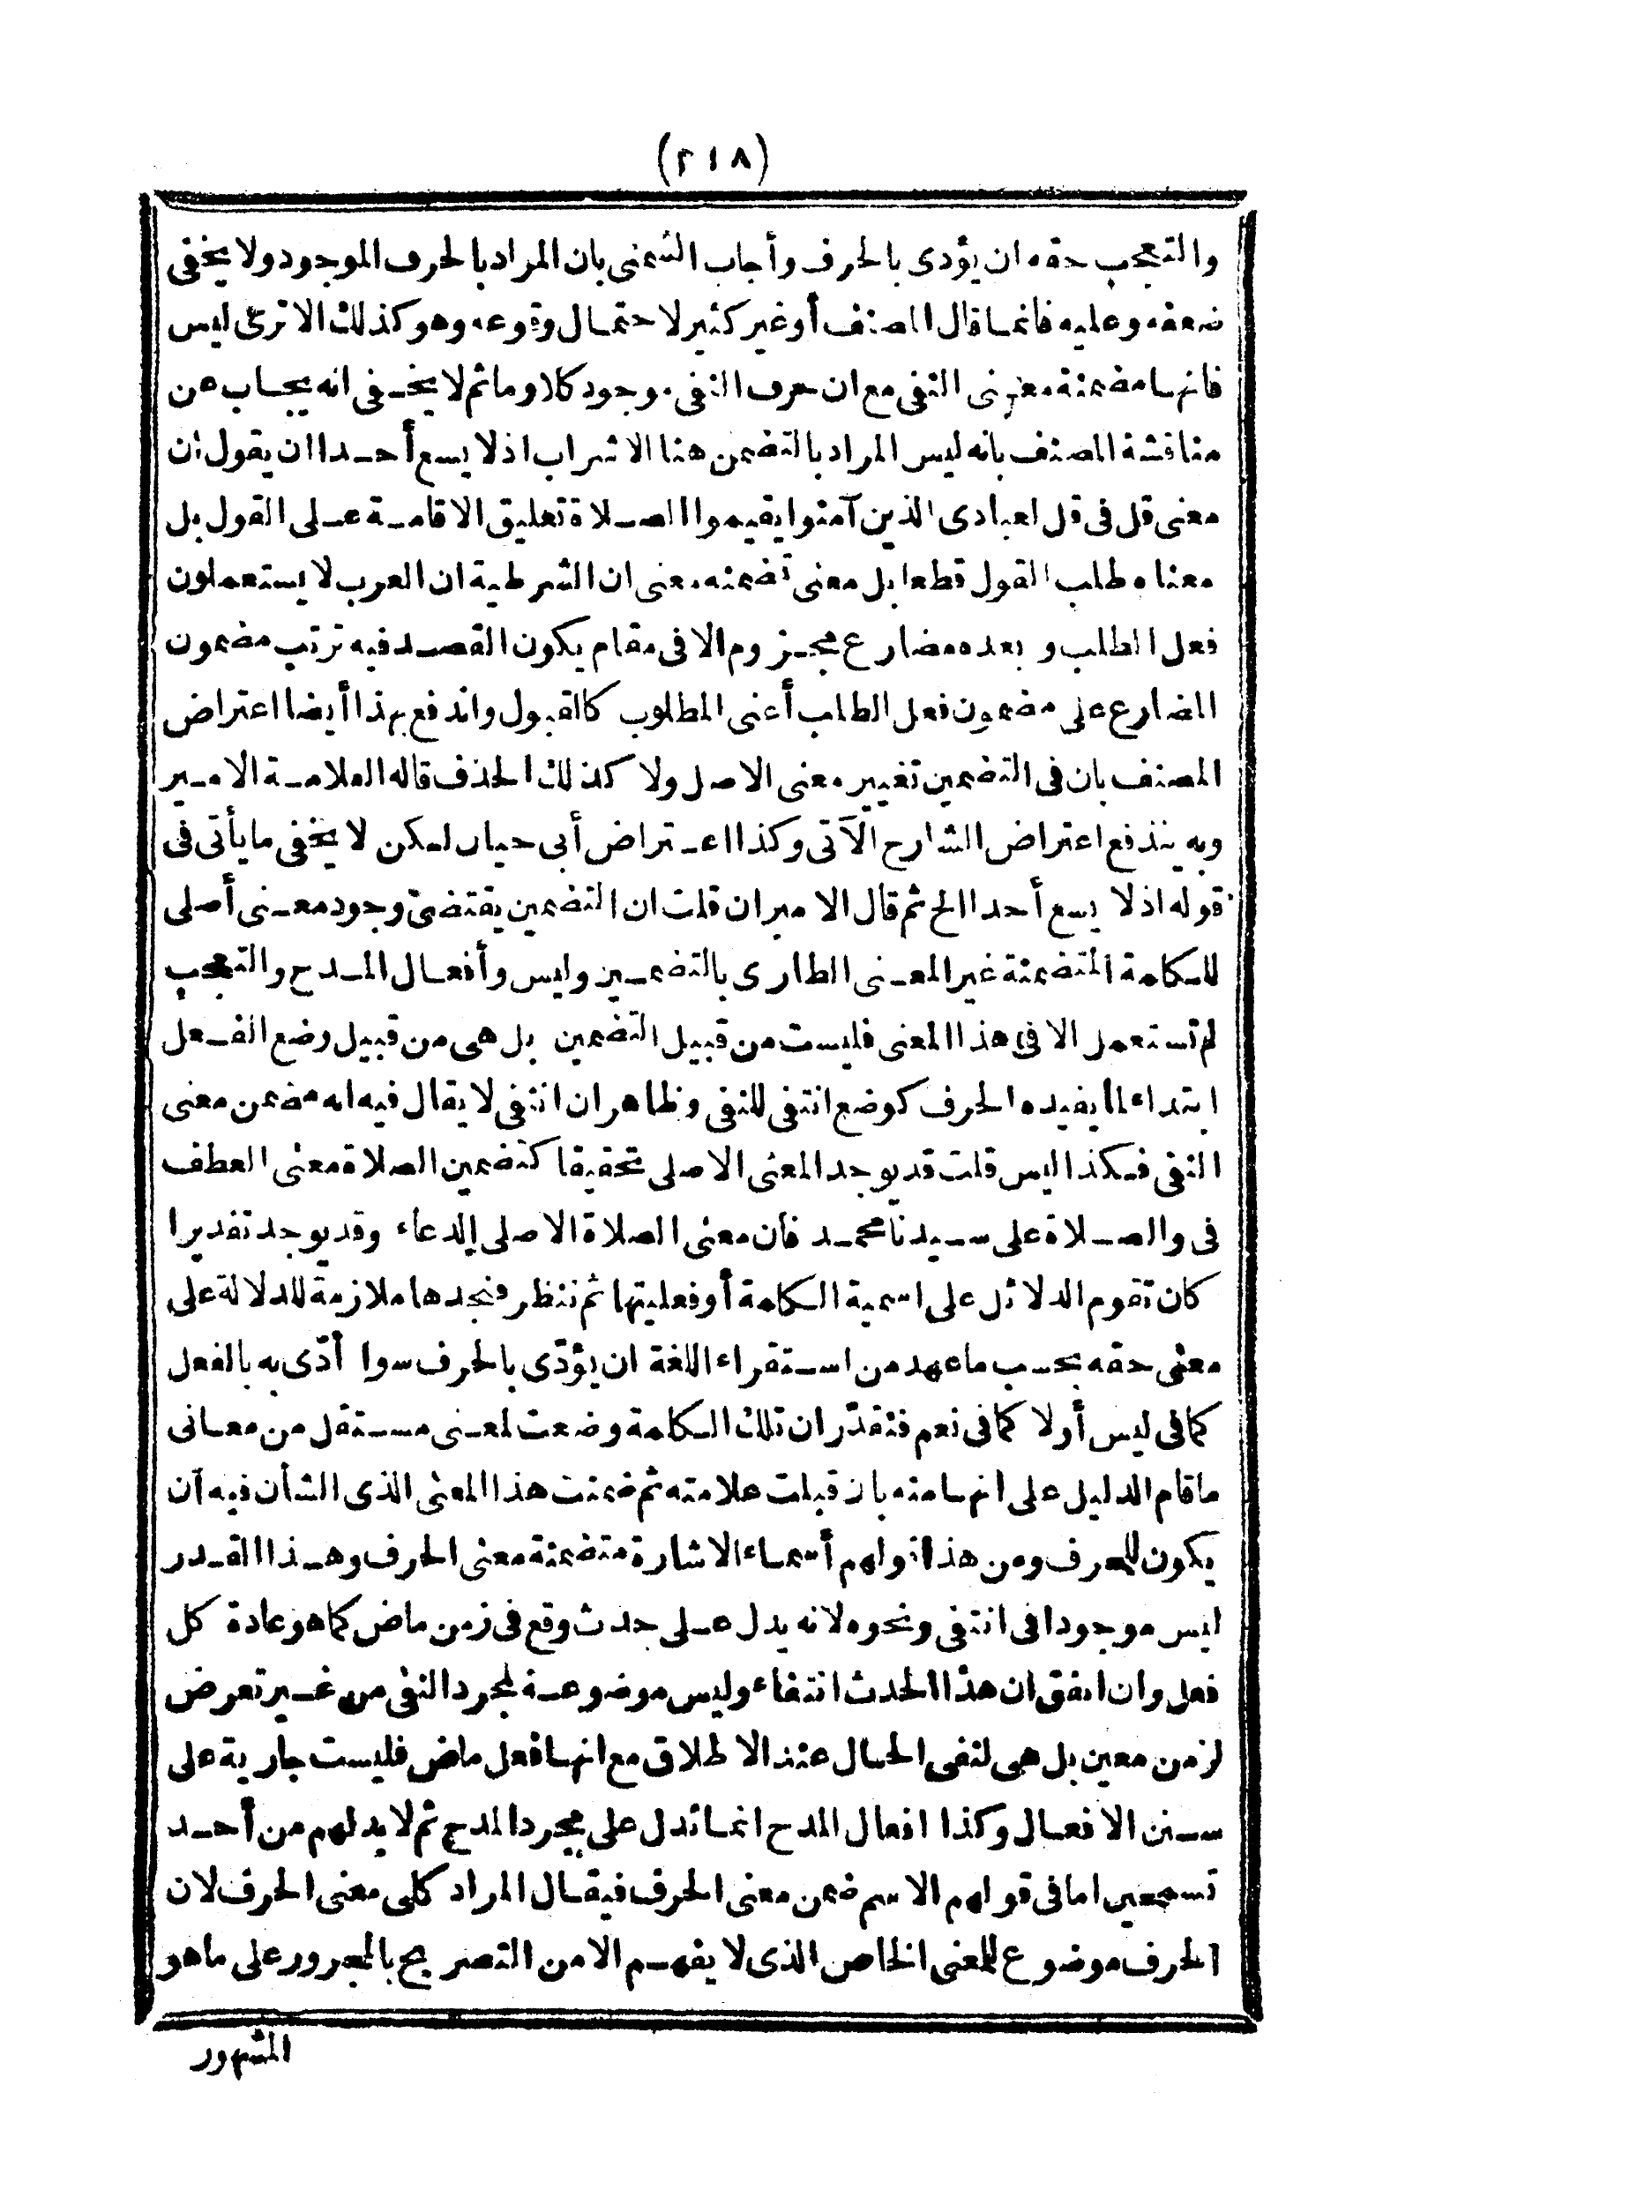 (٢١٨)
والتعجب حقه ان يؤدى بالحرف وأجاب الشمنى بان المراد بالحرف الموجود ولا يخفى
ضعفه وعليه فانما قال المصنف أو غير كثير لاحتمال وقوعه وهو كذلك الا ترى ليس
فانها مضمنة معنى النفى مع ان حرف النفى موجود كلا وما ثم لا يخفى انه يجاب عن
مناقشة المصنف بانه ليس المراد بالتضمن هنا الاشراب اذ لا يسع أحدا ان يقول ان
معنى قل فى قل لعبادى الذين آمنوا يقيموا الصلاة تعليق الاقامة على القول بل
معناه طلب القول قطعا بل معنى تضمنه معنى ان الشرطية ان العرب لا يستعملون
فعل الطلب و بعده مضارع مجزوم الا فى مقام يكون القصد فيه ترتب مضمون
المضارع على مضمون فعل الطلب أعنى المطلوب كالقبول واندفع بهذا أيضا اعتراض
المصنف بان فى التضمين تغيير معنى الاصل ولا كذلك الحذف قاله العلامة الامير
وبه يندفع اعتراض الشارح الآتى وكذا اعتراض أبى حيان لكن لا يخفى ما يأتى فى
قوله اذ لا يسع أحدا الخ ثم قال الامير ان قلت ان التضمين يقتضى وجود معنى أصلى
للكلمة المتضمنة غير المعنى الطارى بالتضمين وليس وأفعال المدح والتعجب
لم تستعمل الا فى هذا المعنى فليست من قبيل التضمين بل هى من قبيل وضع الفعل
ابتداء لما يفيده الحرف كوضع انتفى للنفى وظاهر ان انتفى لا يقال فيه انه مضمن معنى
النفى فكذا ليس قلت قد يوجد المعنى الاصلى تحقيقا كتضمين الصلاة معنى العطف
فى والصلاة على سيدنا محمد فان معنى الصلاة الاصلى الدعاء وقد يوجد تقديرا
كان تقوم الدلائل على اسمية الكلمة أو فعليتها ثم ننظر فنجدها ملازمة للدلالة على
معنى حقه بحسب ما عهد من استقراء اللغة ان يؤدّى بالحرف سوا أدّى به بالفعل
كما فى ليس أولا كما فى نعم فنقدّر ان تلك الكلمة وضعت لمعنى مستقل من معانى
ما قام الدليل على انها منه بان قبلت علامته ثم ضمنت هذا المعنى الذى الشأن فيه ان
يكون للحرف ومن هذا قولهم أسماء الاشارة متضمنة معنى الحرف وهذا القدر
ليس موجودا فى انتفى ونحوه لانه يدل على حدث وقع فى زمن ماض كما هو عادة كل
فعل وان اتفق ان هذا الحدث انتفاء وليس موضوعة لمجرد النفى من غير تعرض
لزمن معين بل هى لنفى الحال عند الاطلاق مع انها فعل ماض فليست جارية على
سنن الافعال وكذا افعال المدح انما تدل على مجرد المدح ثم لا بد لهم من أحد
تسمحين اما فى قولهم الاسم ضمن معنى الحرف فيقال المراد كلى معنى الحرف لان
الحرف موضوع للمعنى الخاص الذى لا يفهم الا من التصريح بالمجرور على ما هو
المشهور